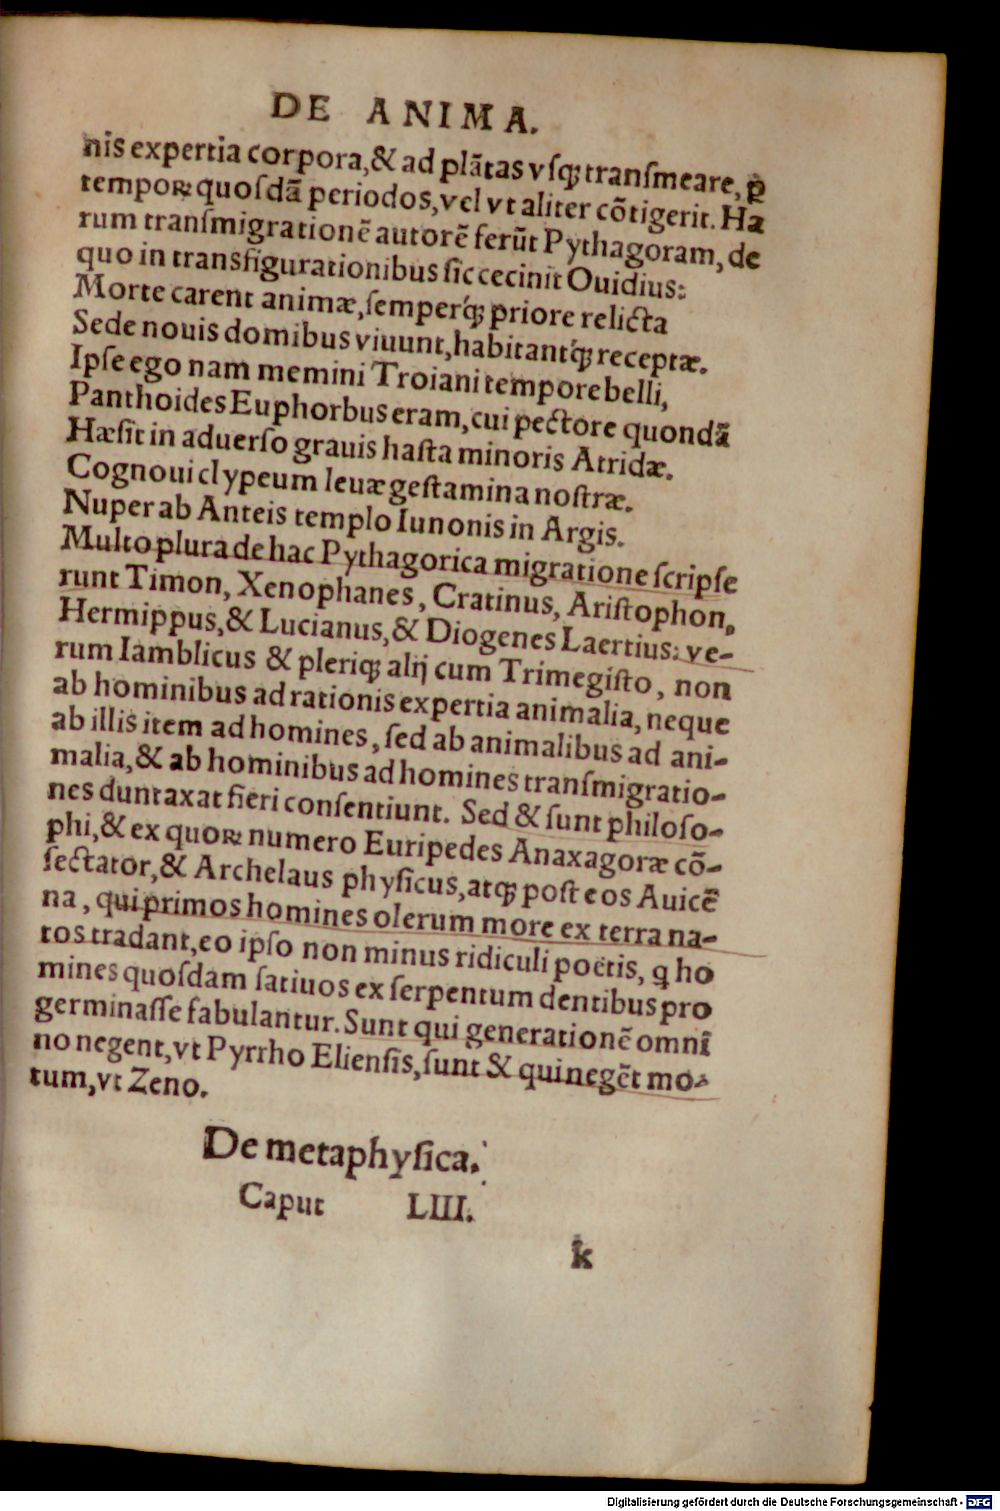 DE ANIMA.
nis expertia corpora,& ad plātas vſqꝫ tranſmeare, ꝑ
temporꝝ quoſdā periodos, vel vt aliter cōtigerit. Ha
rum tranſmigrationē autorē ferūt Pythagoram, de
quo in transfigurationibus ſic cecinit Ouidius:
Morte carent animæ, ſemperq́ꝫ priore relicta
Sede nouis domibus viuunt, habitantq́ꝫ receptæ.
Ipſe ego nam memini Troiani tempore belli,
Panthoides Euphorbus eram, cui pectore quondā
Hæſit in aduerſo grauis haſta minoris Atridæ.
Cognoui clypeum leuæ geſtamina noſtræ.
Nuper ab Anteis templo Iunonis in Argis.
Multo plura de hac Pythagorica migratione ſcripſe
runt Timon, Xenophanes, Cratinus, Ariſtophon,
Hermippus,& Lucianus,& Diogenes Laertius: ve-
rum Iamblicus & pleriqꝫ alij cum Trimegiſto, non
ab hominibus ad rationis expertia animalia, neque
ab illis item ad homines, ſed ab animalibus ad ani-
malia,& ab hominibus ad homines tranſmigratio-
nes duntaxat fieri conſentiunt. Sed & ſunt philoſo-
phi,& ex quorꝝ numero Euripedes Anaxagoræ cō-
ſectator,& Archelaus phyſicus, atqꝫ poſt eos Auicē
na, qui primos homines olerum more ex terra na-
tos tradant, eo ipſo non minus ridiculi poetis, ꝗ ho
mines quoſdam ſatiuos ex ſerpentum dentibus pro
germinaſſe fabulantur. Sunt qui generationē omnī
no negent, vt Pyrrho Elienſis, ſunt & qui negēt mo-
tum, vt Zeno.
De metaphyſica.
Caput LIII.
k
Digitalisierung gefördert durch die Deutsche Forschungsgemeinschaft - DFG